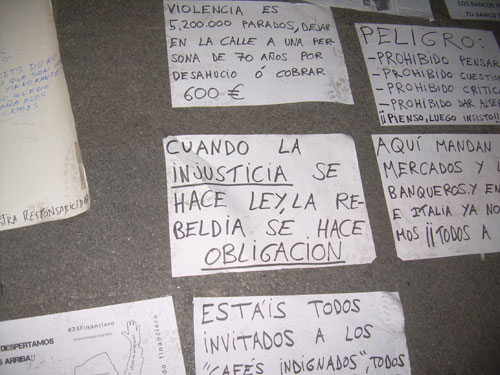 VIOLENCIA ES
5.200.000 PARADOS, DEJAR
EN LA CALLE A UNA PER-
SONA DE 70 AÑOS POR
DESAHUCIO Ó COBRAR
600 €
LOS BANCOS
TU SANGRE
PELIGRO:
-PROHIBIDO PENSAR
-PROHIBIDO
-PROHIBIDO
-PROHIBIDO DAR
¡¡PIENSO, LUEGO INSISTO!!
RESPONSABILIDAD
CUANDO LA
INJUSTICIA SE
HACE LEY, LA RE-
BELDIA SE HACE
OBLIGACION
AQUÍ MANDAN
MERCADOS Y
BANQUEROS. Y EN
E ITALIA YA NO
MOS ¡¡TODOS A
#23financiero
DESPERTAMOS
ARRIBA!!
ESTÁIS TODOS
INVITADOS A LOS
"CAFÉS INDIGNADOS", TODOS